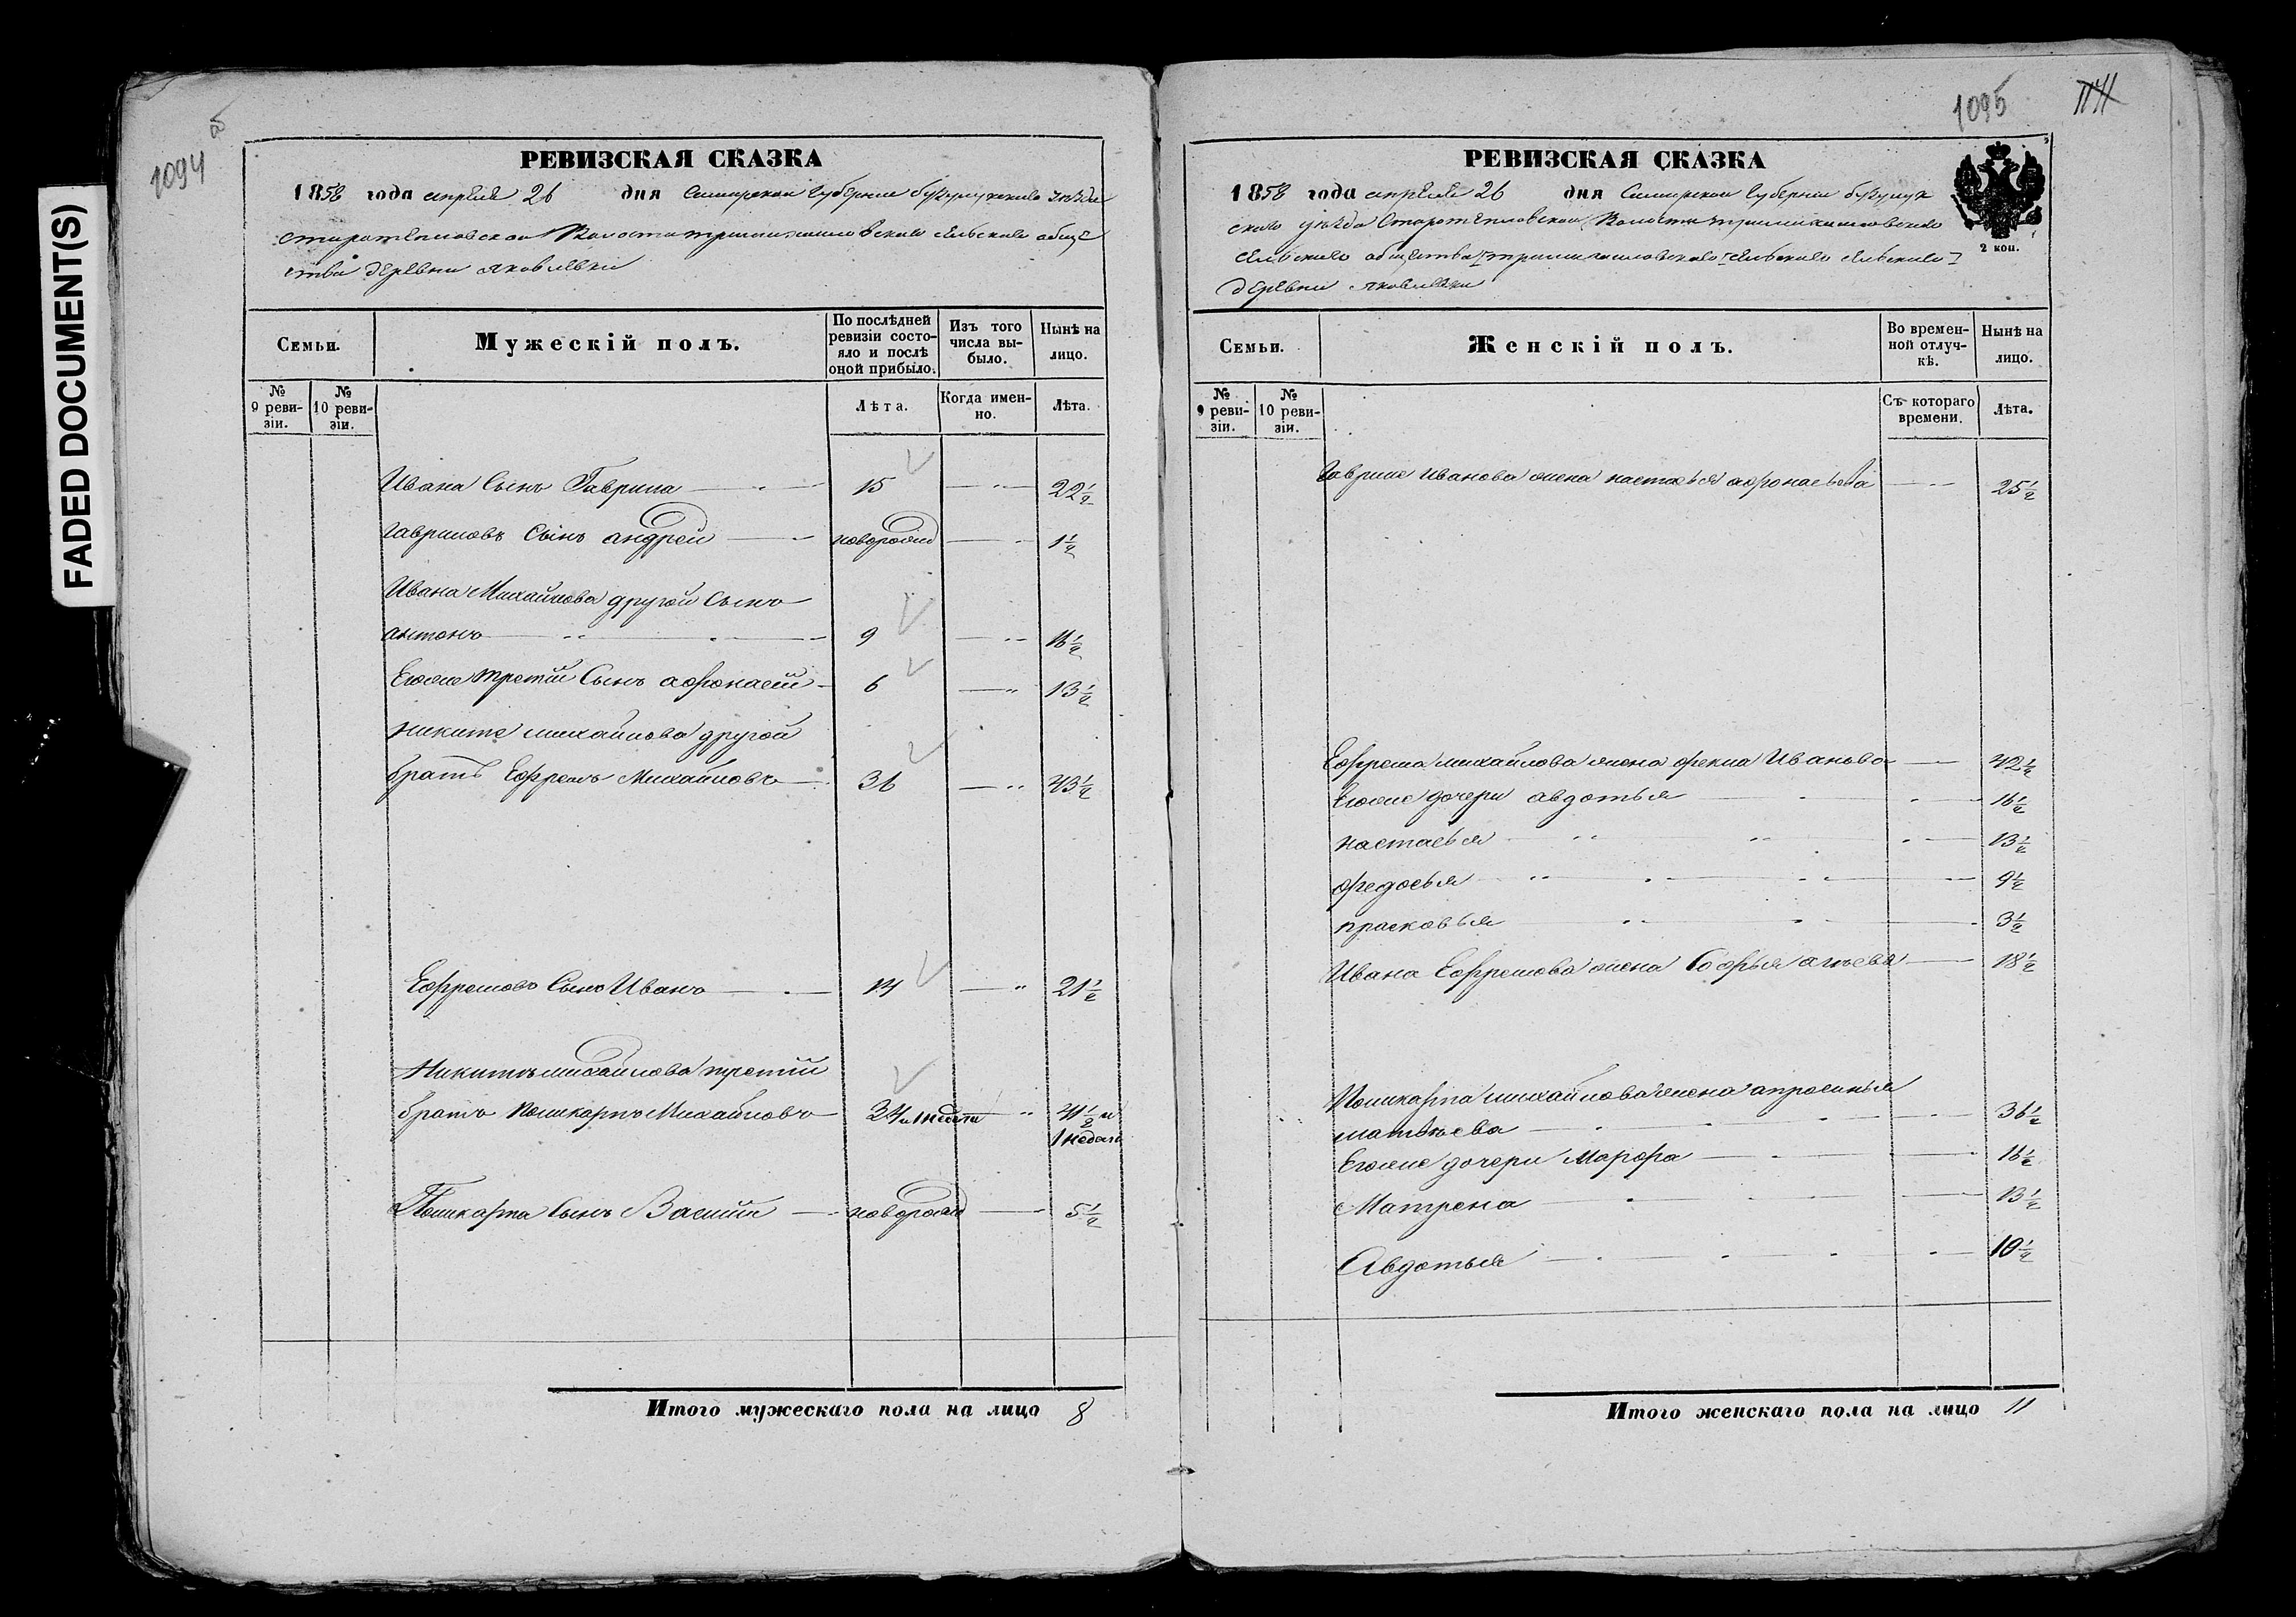 FADED DOCUMENT(S)
1094
РЕВИЗСКАЯ СКАЗКА
1858 года апреля 26 дня Самарской губернии бузулукскаго уезда
старотепловской Волости тришкинскаго сельскаго обще
ства деревни яковлевки
Семьи.
Мужескій полъ.
По послѣдней ревизіи состо-
яло и послѣ
оной прибыло.
Изъ того
числа вы-
было.
Нынѣ на
лицо.
№
9 реви-
зіи.
№
10 реви-
зіи.
Лѣта.
Когда имен-
но.
Лѣта.
Ивана Сынъ Гаврила 15 22½
гавриловъ Сынъ андрей новорожд 1½
Ивана Михайлова другой Сынъ
антонъ 9 16½
Егоже третій Сынъ афонасей 6 13½
никите михайлова другой
братъ Ефремъ Михайловъ 36 43½
Ефремовъ Сынъ Иванъ 14 21½
Никиты михайлова третій
братъ поликарпъ Михайловъ 34 и 1 недели 41½ и
1 недели
Поликарпа Сынъ Василий новорожд 5½
Итого мужескаго пола на лицо 8
1095
РЕВИЗСКАЯ СКАЗКА
1858 года апреля 26 дня Самарской губернии бузулук
скаго уезда Старотепловской Волости
сельскаго общества сельскаго сельскаго
деревни яковлевки
2 коп.
Семьи.
Женскій полъ.
Во времен-
ной отлуч-
кѣ.
Нынѣ на
лицо.
№
9 реви-
зіи.
№
10 реви-
зіи.
Съ котораго
времени.
Лѣта.
Гаврилы Иванова жена настасья афонасьева 25½
Ефрема михайлова жена фекла Иванова 42½
Егоже дочери авдотья 16½
настасья 13½
федосья 9½
прасковья 3½
Ивана Ефремова жена Софья 18½
Поликарпа михайлова жена апросинья
матвеева 36½
Егоже дочери Марфа 16½
Матрена 13½
Авдотья 10½
Итого женскаго пола на лицо 11